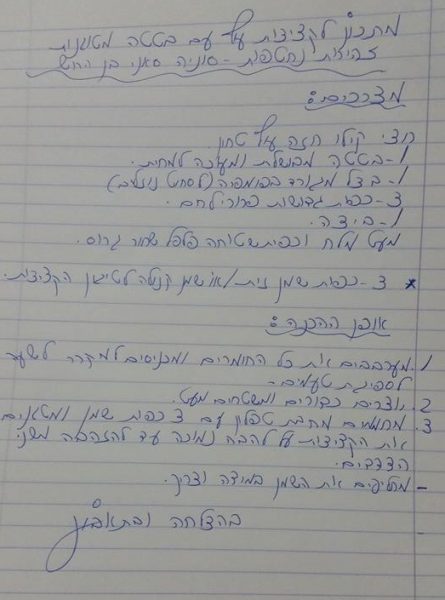 מתכון לקציצות עוף עם בטטה מטוגנות
זהירות נחטפות - סוניה סאני בן הרוש
מצרכים:
חצי קילו חזה עוף טחון.
1 - בטטה מבושלת ומעוכה למחית.
1 - בצל מגורד בפומפיה (לסחוט נוזלים)
3 - כפות גדושות פרורי לחם.
1 - ביצה.
מעט מלח וכפית שטוחה פלפל שחור גרוס.
* 3 - כפות שמן זית /או שמן קנולה לטיגון הקציצות.
אופן ההכנה:
1. מערבבים את כל החומרים ומכניסים למקרר לשעה
לספיגת טעמים -
2. יוצרים כדורים ומשטחים מעט.
3. מחממים מחבת טפלון עם 3 כפות שמן ומטגנים
את הקציצות על להבה נמוכה עד להזהבה משני
הצדדים.
- מחליפים את השמן במידה וצריך.
בהצלחה ובתאבון